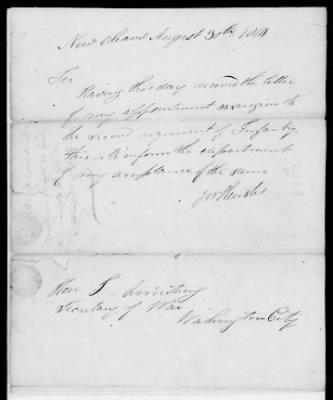 New Orleans August 30th 1814
Sir
Having this day received the letter
of my appointment as surgeon to
the second regiment of Infantry
this is to inform the department
of my acceptance of the same
Hon J Armstrong
Secretary of War
Washington City